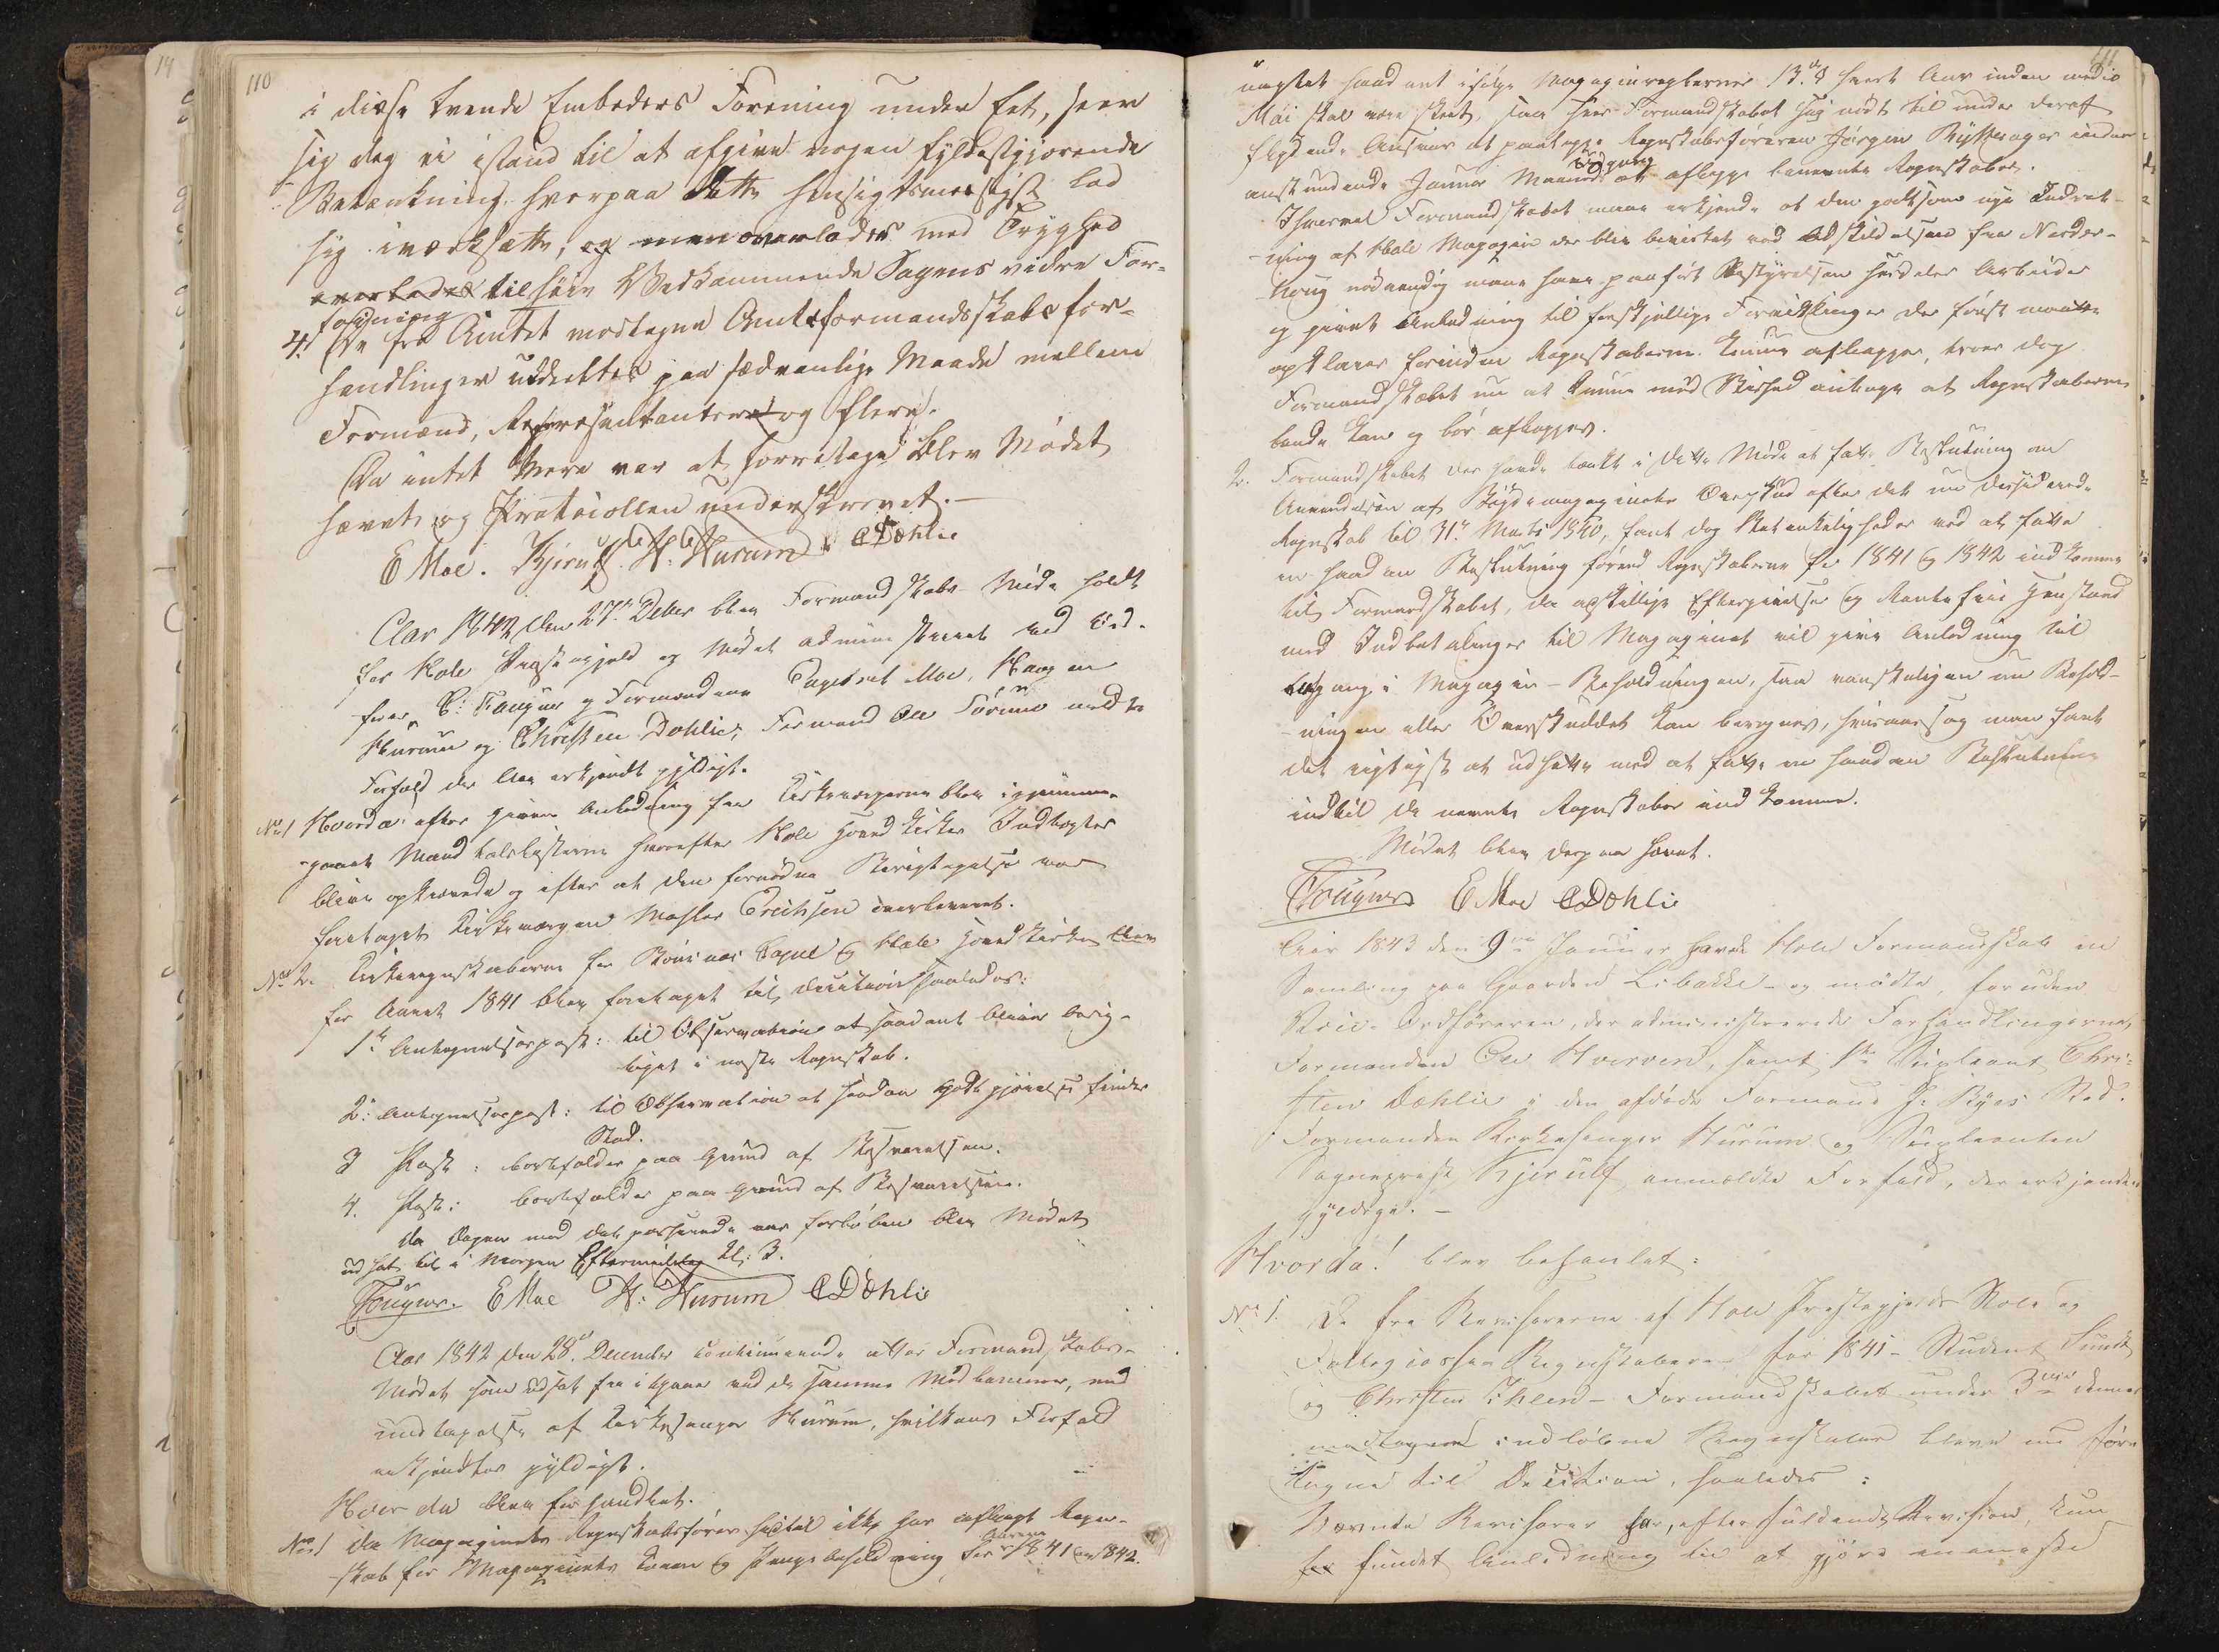 110
i disse tvende Embeders Forening under Eet, seer
sig dog ei istand til at afgive nogen fyldestgjørende
Betænkning, hvorpaa dette hensigtsmæssigst lod
sig iværksætte; og man overlades med Tryghed
overlades til høie Vedkommende Sagens videre For-
føining
4. De fra Amtet modtagne Amtsformandskabsfor-
handlinger uddeeltes paa sædvanlige Maade mellem
Formænd, Representanter og flere.
Da intet Mere var at foretage blev Mødet
hævet og Protocollen underskrevet.
E Moe. Kjerulf. H. Hurum CDøhlie
Aar 1842 den 27de Decbr blev Formandskabs Møde holdt
for Hole Præstegjeld og Mødet administreret ved Ord-
fører C: Fougner og Formændene Engebret Moe, Haagen
Hurum og Christen Døhlie; Formand Ole Sørum meldte
Forfald der blev erkjendt gyldigt.
No 1 Hvorda: efter given Anledning fra Kirkeværgerne blev igjennem-
gaaet Mandtalslisterne hvorefter Hole Hovedkirkes Indtægter
blive opkrævede og efter at den fornødne Berigtigelse var
foretaget Kirkeværgen Erichsen overleveret.
No 2. Kirkeregnskaberne for Bønsnæs Capel og Hole Hovedkirke blev
for Aaret 1841 blev foretaget til Decision saaledes:
1ste Antegnelsespost: til Observation at saadant bliver berig-
tiget i næste Regnskab.
2: Antegnelsespost: til Observation at saadan Godtgjørelse finder
Sted.
3 Post: bortfalder paa Grund af Besvarelsen.
4. Post: bortfalder paa Grund af Besvarelsen.
Da Dagen med det passerede var forløben blev Mødet
udsat til i Morgen Eftermiddag Kl: 3.
Fougner. E Moe H: Hurum CDøhlie
Aar 1842 den 28de December continuerede atter Formandskabs-
Mødet som udsat fra igaar ved de samme Medlemmer, med
undtagelse af Kirkesanger Hurum, hvilkens Forfald
erkjendtes gyldigt.
Hvor da blev forhandlet.
No 1 Da Magazinets Regnskabsfører hidtil ikke har aflagt Regn-
skab for Magazinets Korn og Penge beholdning for Aarene 1841 og 1842.
111
uagtet saadant ifølge Magazinreglernes 13de § hvert Aar inden medio
Mai skal være skeet, saa seer Formandskabet sig nødt til under deraf
flydende Ansvar at paalægge Regnskabsføreren Jørgen Rytterager inden
anstundende Januar Maaneds Udgang at aflægge benævnte Regnskaber.
Ihvorvel Formandskabet maa erkjende at den godtsom nye Indret-
ning af Hole Magazin der blev bevirket ved Adskillelsen fra Norder-
houg nødvendig maa have paaført Bestyrelsen særdeles Arbeide
og givet Anledning til forskjellige Forviklinger der først maatte
opklares forinden Regnskaberne kunne aflægges, troer dog
Formandskabet nu at kunne med Vished antage at Regnskaberne
baade kan og bør aflægges.
2. Formandskabet der havde tænkt i dette Møde at fatte Beslutning om
Anvendelsen af Bygdemagazinets Overskud efter det nu
Regnskab til 31te Marts 1840, fandt dog Betænkeligheder ved at fatte
en saadan Beslutning førend Regnskaberne for 1841 og 1842 indkomme
til Formandskabet, da adskillige Eftergivelser og Rentefrie Henstand
med Indbetalinger til Magazinet vil give Anledning til
Afgang i Magazin-Beholdningen, saa vanskeligen nu Behold-
ningen eller Overskuddet kan beregnes, hvisaarsag man fandt
det rigtigst at udsætte med at fatte en saadan Beslutning
indtil de nævnte Regnskaber indkomme.
Mødet blev derpaa hævet.
Fougner E Moe CDøhlie
Aar 1843 den 9de Januar havde Hole Formandskab en
Samling paa Gaarden Libakke - og mødte, foruden
Vice-Ordføreren, der administrerede Forhandlingerne,
Formanden Ole Hverven, samt 1ste Supleant Chri-
sten Døhlie i den afdøde Formand G: Byes Sted.
Formanden Kirkesanger Hurum og Supleanten
Sogneprest Kjerulf anmældte Forfald, der erkjendtes
gyldige. -
Hvorda! blev behanlet:
No 1. De fra Revisorerne af Hole Prestegjelds Skole og
Fattigcasses Regnskaber - for 1841 - Student Lund
og Christen Ihlen - Formandskabet under 3die dennes
modtagne indløbne Regnskaber bleve nu fore
tagne til Decision, saaledes:
Nævnte Revisorer har, efter fuldendt Revision, kun
for fundet Anledning til at gjøre eneneste